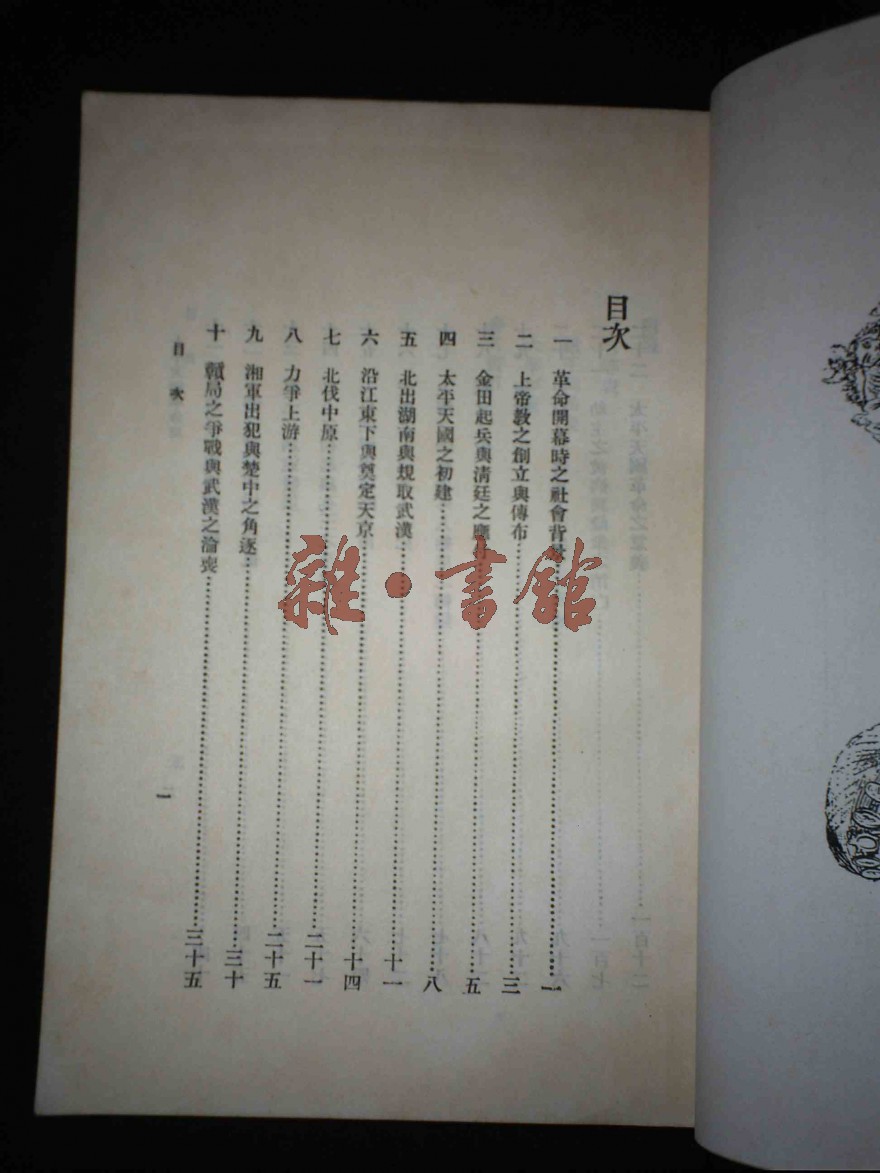 目次
一 革命開幕時之社會背景……一
二 上帝教之創立與傳布……三
三 金田起兵與清廷之應……五
四 太平天國之初建……八
五 北出湖南與規取武漢……十一
六 沿江東下與奠定天京……十四
七 北伐中原……二十一
八 力爭上游……二十五
九 湘軍出犯與楚中之角逐……三十
十 贛局之爭戰與武漢之淪喪……三十五
目次
一
雜·書館